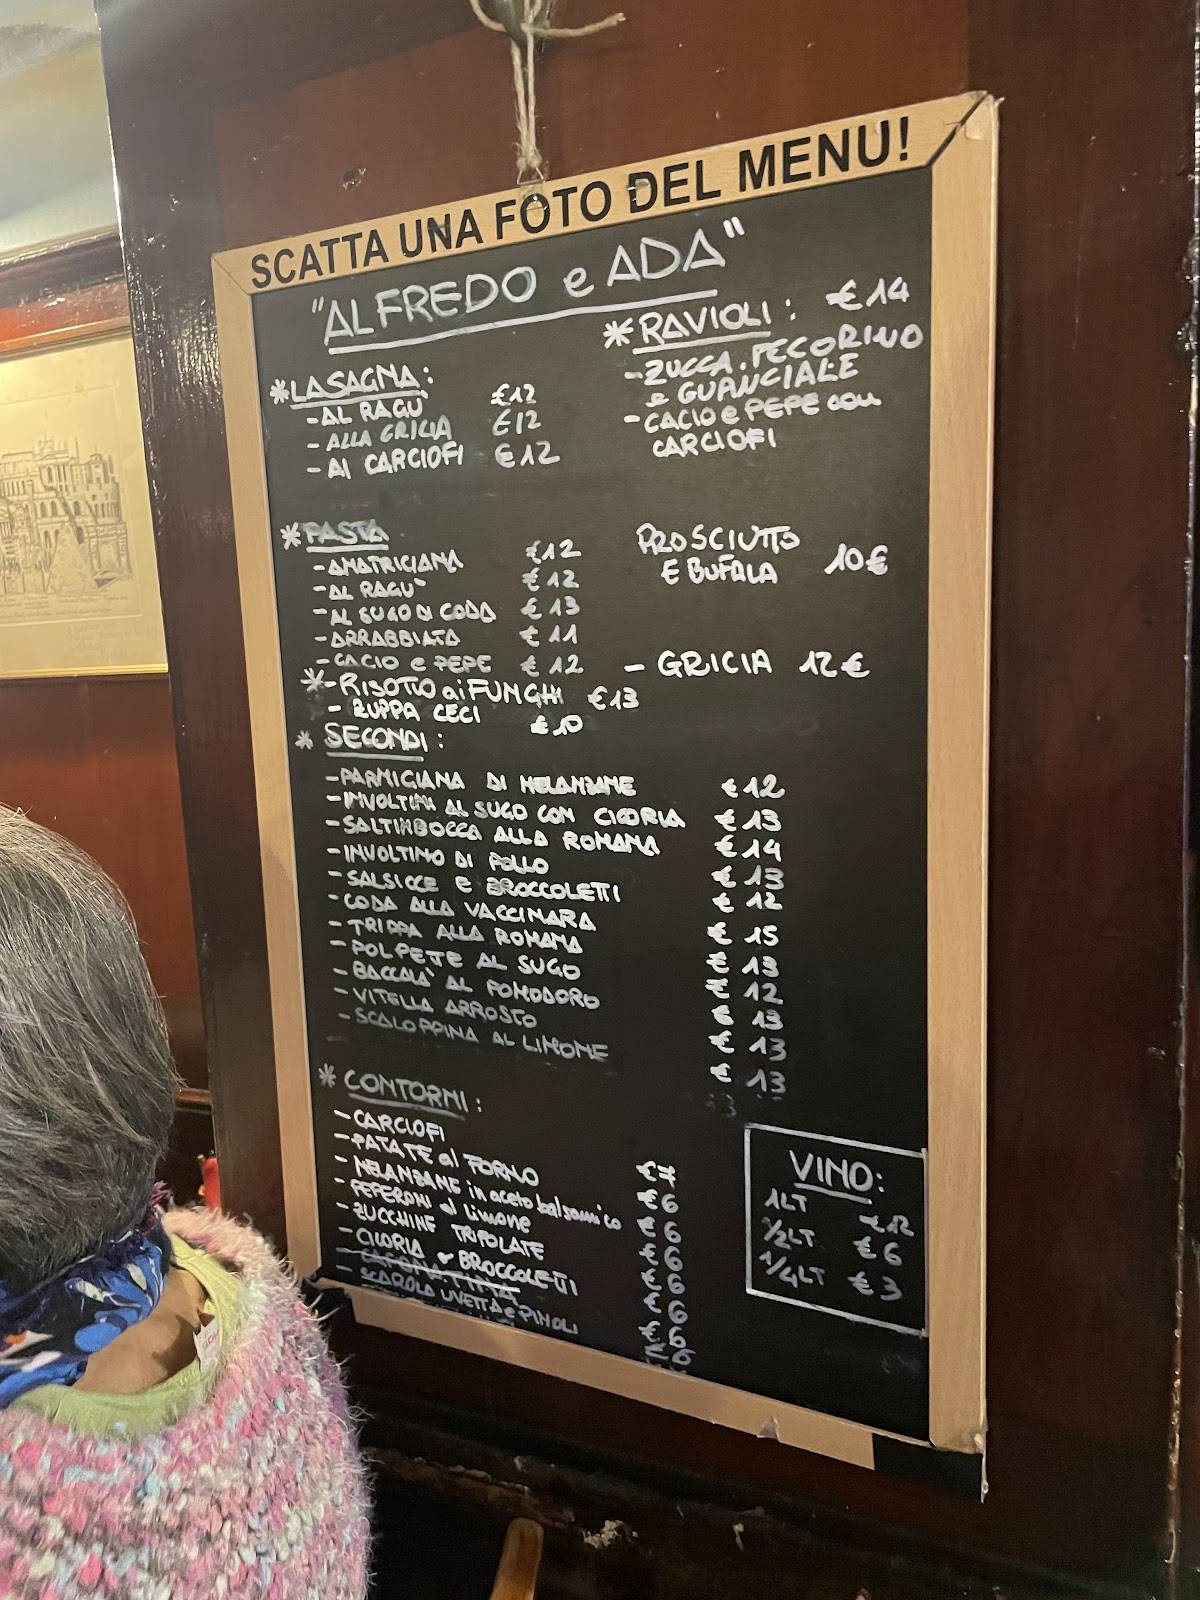 SCATTA UNA FOTO DEL MENU!
"ALFREDO e ADA"
*LASAGNA:
-AL RAGÙ €12
-ALLA GRICIA €12
-AI CARCIOFI €12
*RAVIOLI: €14
-ZUCCA, PECORINO
e GUANCIALE
-CACIO e PEPE con
CARCIOFI
*PASTA
-AMATRICIANA €12
-AL RAGÙ €12
-AL SUGO DI CODA €13
-ARRABBIATA €11
-CACIO e PEPE €12
PROSCIUTTO
E BUFALA 10€
- GRICIA 12€
*-RISOTTO ai FUNGHI €13
- ZUPPA CECI €10
* SECONDI:
-PARMIGIANA DI MELANZANE €12
-INVOLTINI AL SUGO CON CICORIA €13
-SALTIMBOCCA ALLA ROMANA €14
-INVOLTINO DI POLLO €13
-SALSICCE E BROCCOLETTI €12
-CODA ALLA VACCINARA €15
-TRIPPA ALLA ROMANA €13
-POLPETE AL SUGO €12
-BACCALA' AL POMODORO €13
-VITELLA ARROSTO €13
-SCALOPPINA AL LIMONE €13
* CONTORNI:
-CARCIOFI €7
-PATATE al FORNO €6
-MELANZANE in aceto balsamico €6
-PEPERONI al limone €6
-ZUCCHINE TRIFOLATE €6
-CICORIA o BROCCOLETTI €6
- SCAROLA UVETTA e PINOLI
VINO:
1LT €12
1/2LT €6
1/4LT €3